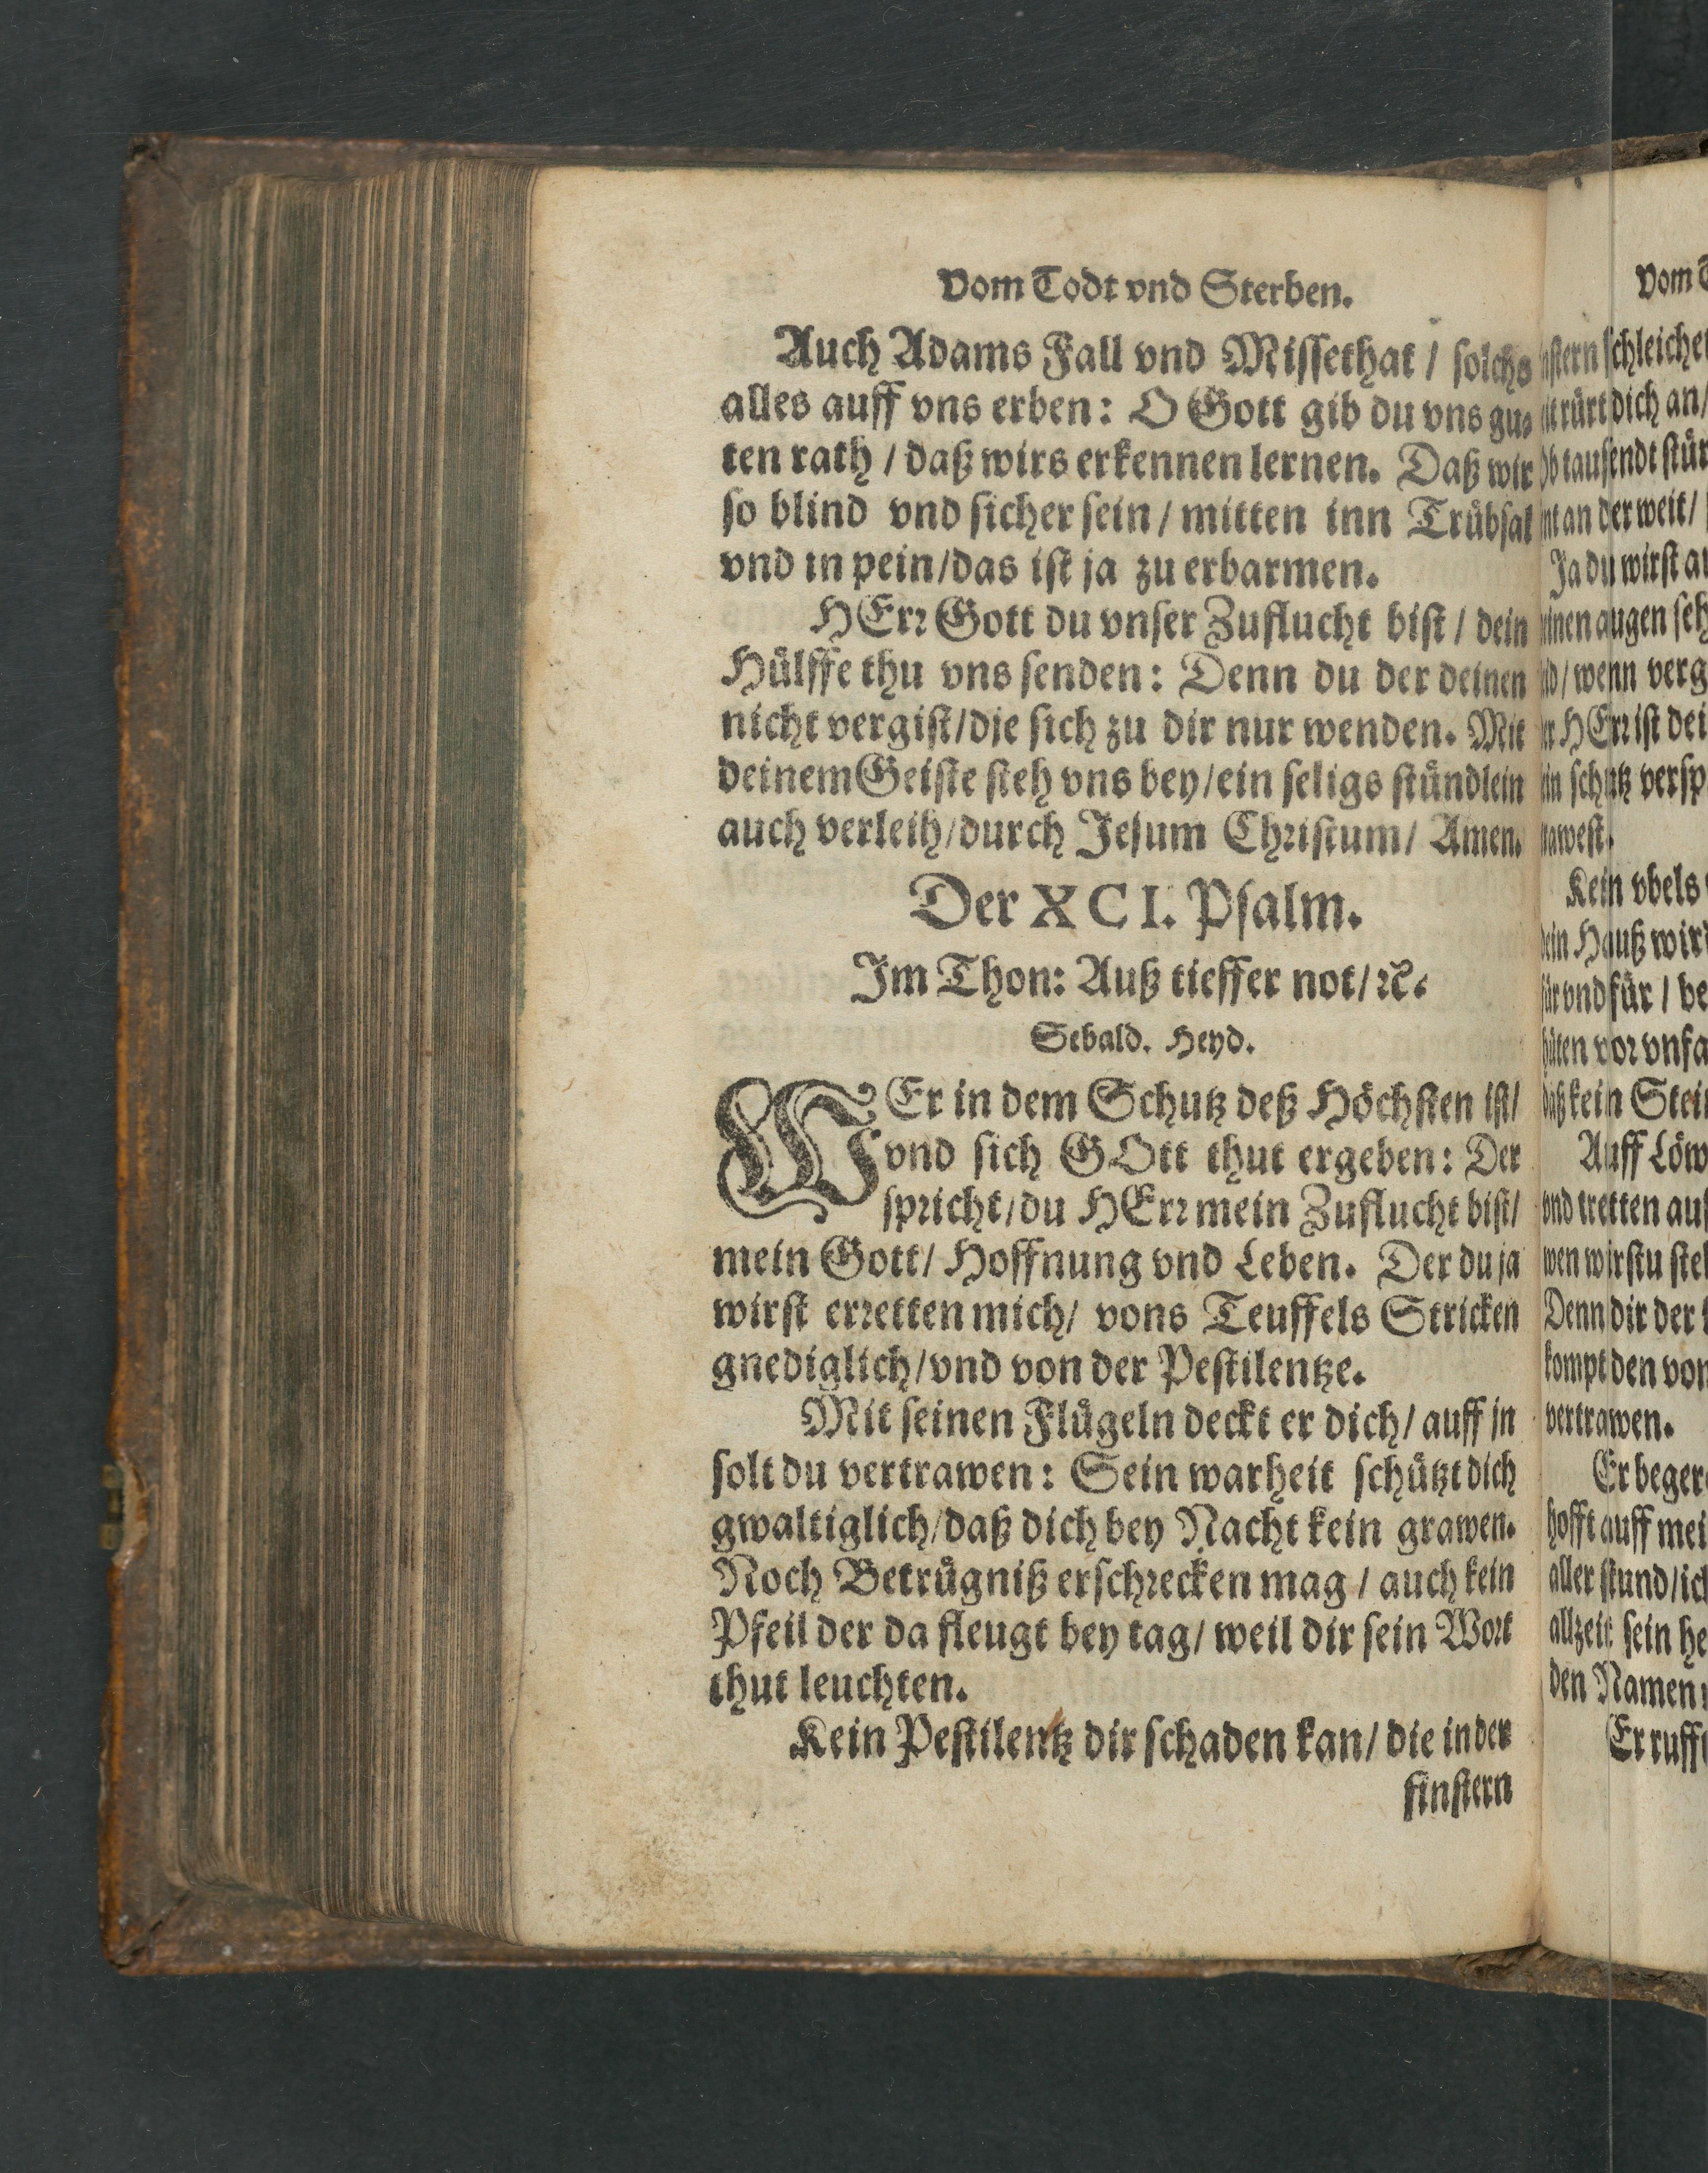 Vom Todt vnd Sterben.
Auch Adams Fall vnd Missethat / solchs
alles auff vns erben: O Gott gib du vns gu-
ten rath / daß wirs erkennen lernen. Daß wir
so blind vnd sicher sein / mitten inn Trübsal
vnd in pein / das ist ja zu erbarmen.
HErr Gott du vnser Zuflucht bist / dein
Hülffe thu vns senden: Denn du der deinen
nicht vergist / die sich zu dir nur wenden. Mit
deinem Geiste steh vns bey / ein seligs stündlein
auch verleih / durch Jesum Christum / Amen.
Der XCI. Psalm.
Im Thon: Auß tieffer not / ꝛc.
Sebald. Heyd.
WEr in dem Schutz deß Höchsten ist /
vnd sich GOtt thut ergeben: Der
spricht / du HErr mein Zuflucht bist /
mein Gott / Hoffnung vnd Leben. Der du ja
wirst erretten mich / vons Teuffels Stricken
gnediglich / vnd von der Pestilentze.
Mit seinen Flügeln deckt er dich / auff jn
solt du vertrawen: Sein warheit schützt dich
gwaltiglich / daß dich bey Nacht kein grawen.
Noch Betrügniß erschrecken mag / auch kein
Pfeil der da fleugt bey tag / weil dir sein Wort
thut leuchten.
Kein Pestilentz dir schaden kan / die in der
finstern
Vom
schleiche
rürt dich an /
tausendt stür
an der weit /
Ja du wirst
augen seh
/ wenn verg
HErr ist dei
schutz versp
Kein vbels
Hauß wird
vnd für / be
vor vnfa
kein Stei
Auff Löw
vnd tretten auf
wen wirstu ste
Denn dir der
kompt den von
vertrawen.
Er beger
hofft auff mei
aller stund / ich
allzeit sein he
den Namen
Er ruff